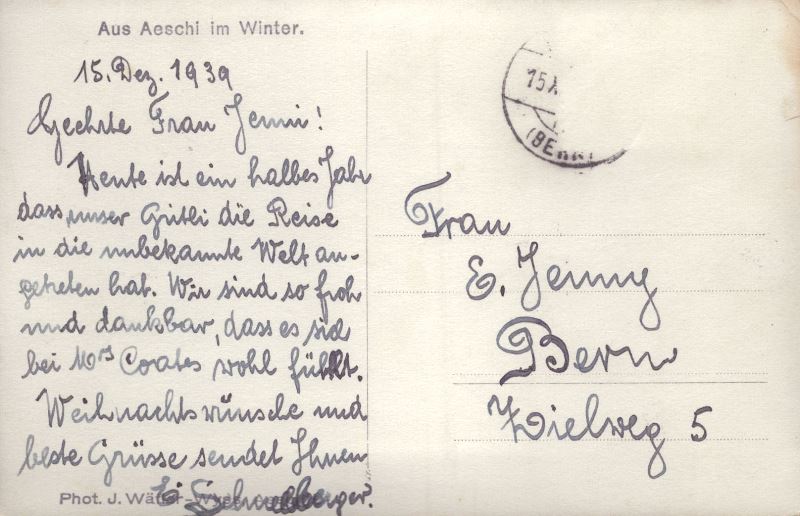 Aus Aeschi im Winter.
15. Dez. 1939
Geehrte Frau Jenni!
Heute ist ein halbes Jahr
dass unser Gritli die Reise
in die unbekannte Welt an-
getreten hat. Wir sind so froh
und dankbar, dass es sich
bei Mrs Coates wohl fühlt.
Weihnachtswünsche und
beste Grüsse sendet Ihnen
Phot. J.
15.X
(BERN)
Frau
E. Jenny
Bern
Zielweg 5